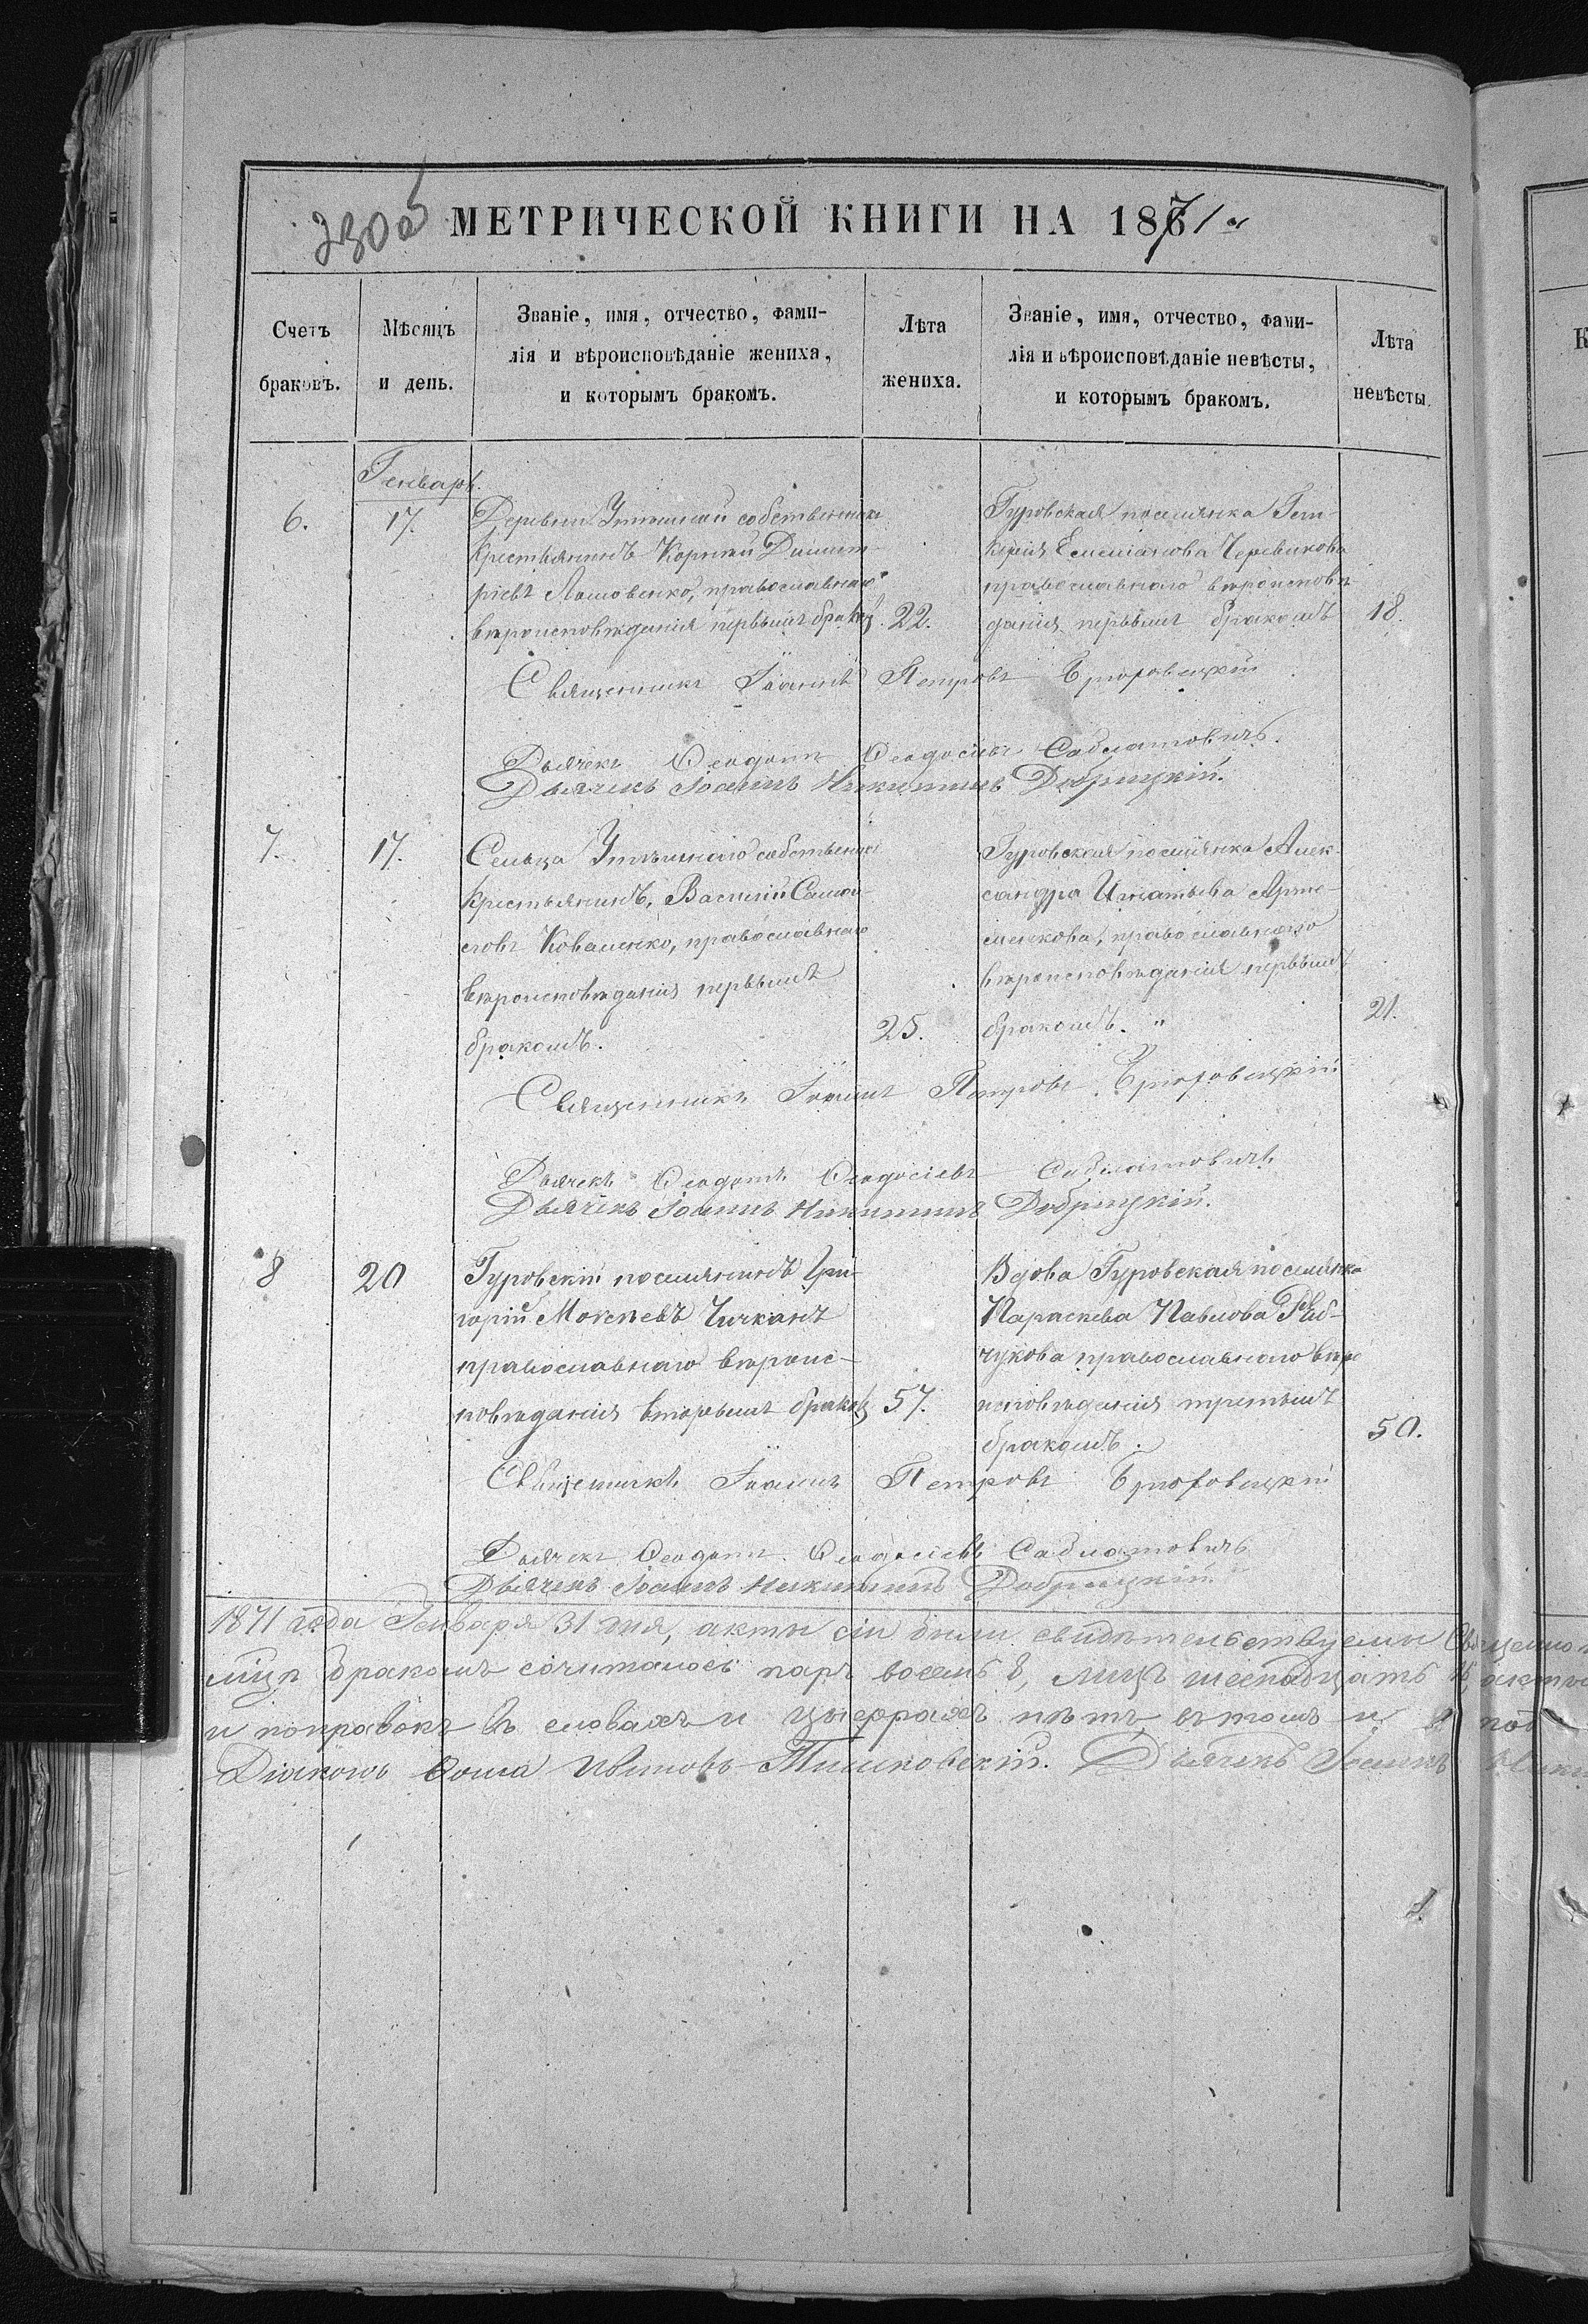 230 об
МЕТРИЧЕСКОЙ КНИГИ НА 1871 г
Счетъ браковъ.
Мѣсяцъ и день.
Званіе, имя, отчество, фами-
лія и вѣроисповѣданіе жениха,
и которымъ бракомъ.
Лѣта жениха.
Званіе, имя, отчество, фами-
лія и вѣроисповѣданіе невѣсты,
и которымъ бракомъ.
Лѣта невѣсты.
Генварь.
6.
17.
Деревни собственникъ
крестьянинъ Корній Димит-
ріевъ православнаго
вѣроисповѣданія первымъ браком
22.
Гуровская поселянка Гли-
керія Емеліанова Черевикова
православнаго вѣроисповѣ-
данія первымъ бракомъ
18.
Священникъ Іоаннъ Петровъ Брюховецкій
Дьячекъ Ѳеодотъ Ѳеодосіевъ Саблатовичъ.
Дьячекъ Іоаннъ Никитинъ Добрицкій.
7.
17.
Сельца собственникъ
крестьянинъ, Василій Самои-
ловъ Коваленко, православнаго
вѣроисповѣданія первымъ
бракомъ.
25.
Гуровская поселянка Алек-
сандра Игнатьева Арте-
менкова, православнаго
вѣроисповѣданія первымъ
бракомъ. "
21.
Священникъ Іоаннъ Петровъ Брюховецкій
Дьячекъ Ѳеодотъ Ѳеодосіевъ Саблатовичъ
Дьячекъ Іоаннъ Никитинъ Добрицкій.
8
20
Гуровскій поселянинъ Гри-
горій Мокіевъ Чичканъ
православнаго вѣроис-
повѣданія вторымъ браком
57.
Вдова Гуровская поселянка
Параскева Павлова Ряб-
чукова православнаго вѣро
исповѣданія третьимъ
бракомъ.
50.
Священникъ Іоаннъ Петровъ Брюховецкій
Дьячекъ Ѳеодотъ Ѳеодосіевъ Саблатовичъ
Дьячекъ Іоаннъ Никитинъ Добрицкій
1871 года Генваря 31 дня, акты сіи были свидѣтельствуемы Священно
бракомъ сочиталось паръ восемь 8, лицъ шеснадцать 16, акты
и поправокъ въ словахъ и цыфрахъ нѣтъ, въ томъ и под
Діаконъ Ѳома Тишковскій. Дьячекъ Іоаннъ Ники